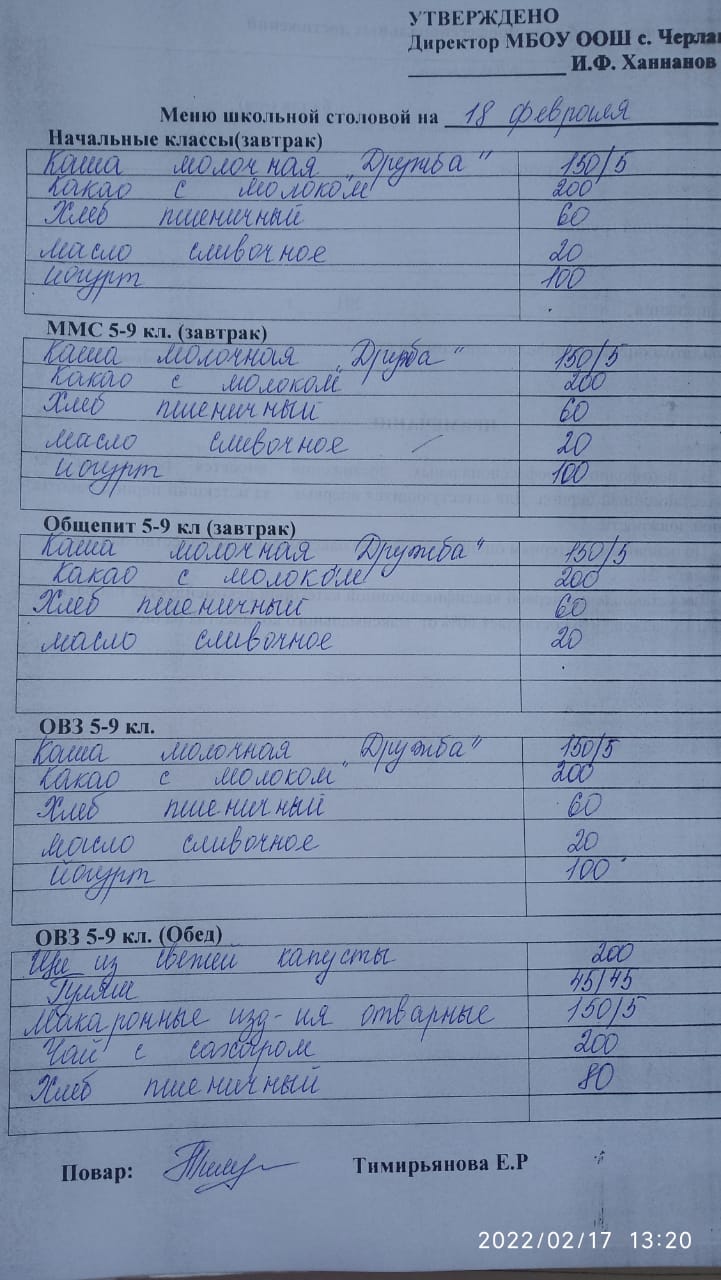 УТВЕРЖДЕНО
Директор МБОУ ООШ с. Черла
И.Ф. Ханнанов
Меню школьной столовой на 18 февраля
Начальные классы(завтрак)
Каша молочная „Дружба" 150/5
Какао с молоком 200
Хлеб пшеничный 60
масло сливочное 20
йогурт 100
ММС 5-9 кл. (завтрак)
Каша молочная „Дружба" 150/5
Какао с молоком 200
Хлеб пшеничный 60
масло сливочное 20
йогурт 100
Общепит 5-9 кл (завтрак)
Каша молочная „Дружба" 150/5
Какао с молоком 200
Хлеб пшеничный 60
масло сливочное 20
ОВЗ 5-9 кл.
Каша молочная „Дружба" 150/5
Какао с молоком 200
Хлеб пшеничный 60
масло сливочное 20
йогурт 100
ОВЗ 5-9 кл. (Обед)
Щи из свежей капусты 200
Гуляш 45/45
Макаронные изд-ия отварные 150/5
Чай с сахаром 200
Хлеб пшеничный 80
Повар: Тимирьянова Е.Р
2022/02/17 13:20